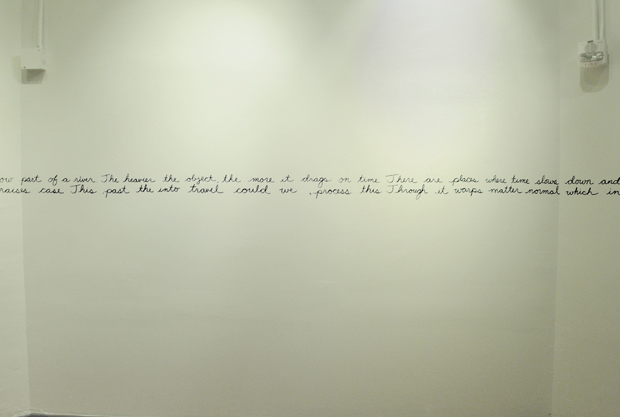 ow part of a river The heavier the object the more it drags on time There are places where time slows down and
raises case This past the into travel could we , process this Through it warps matter normal which in